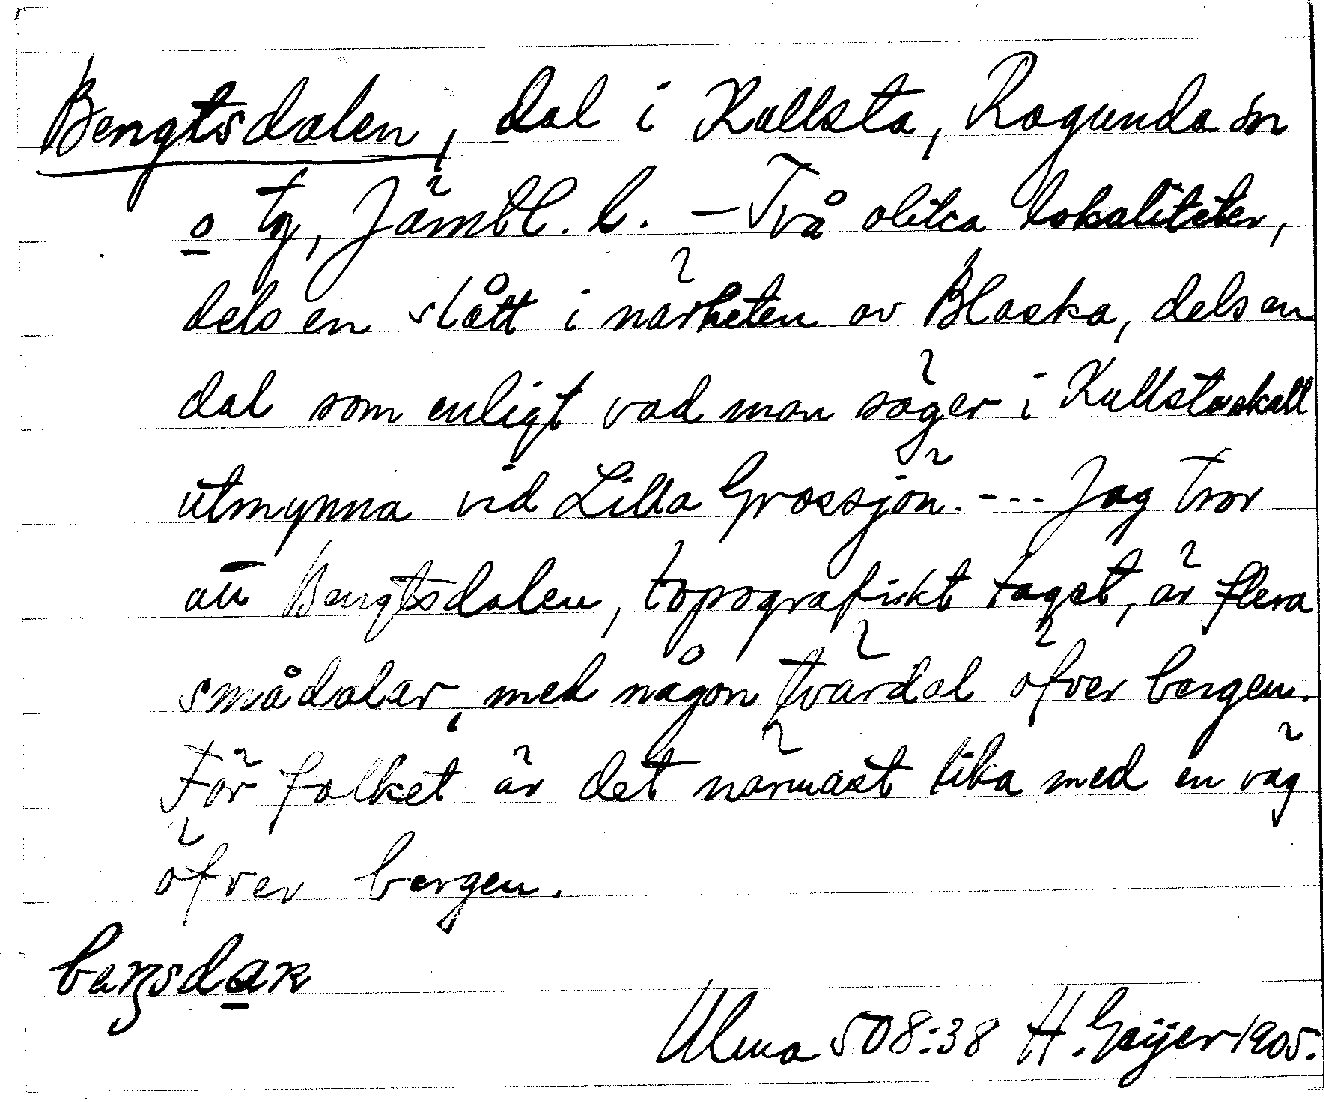 Bengtsdalen, dal i Kullsta, Ragunda sn
o tg, Jämtl. l. – Två olika lokaliteter,
dels en slått i närheten av Blacka, dels en
dal som enligt vad man säger i Kullsta skall
utmynna vid Lilla Grossjön. --- Jag tror
att Bengtsdalen, topografiskt taget, är flera
smådalar, med någon tvärdal öfver bergen.
För folket är det närmast lika med en väg
öfver bergen.
Ulma 508:38 H. Geijer 1905.